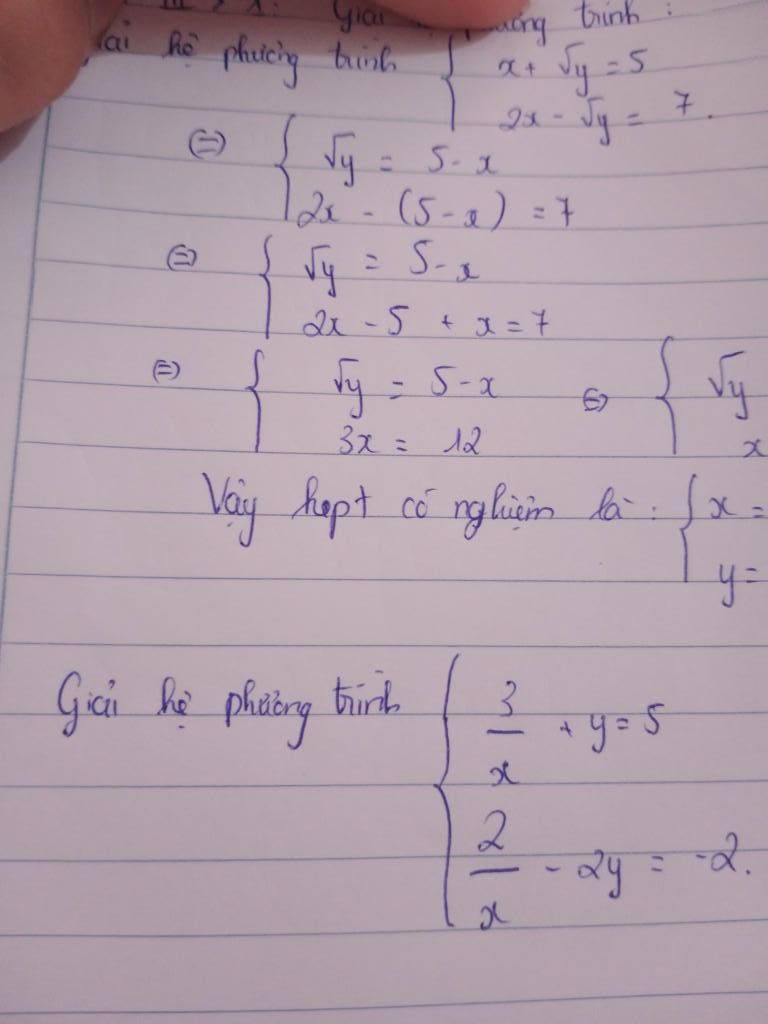 Giải phương trình :
Giải hệ phương trình { x + √y = 5
2x - √y = 7.
⇔ { √y = 5 - x
2x - (5 - x) = 7
⇔ { √y = 5 - x
2x - 5 + x = 7
⇔ { √y = 5 - x ⇔ { √y
3x = 12 x
Vậy hept có nghiệm là : { x =
y =
Giải hệ phương trình { 3/x + y = 5
2/x - 2y = -2.